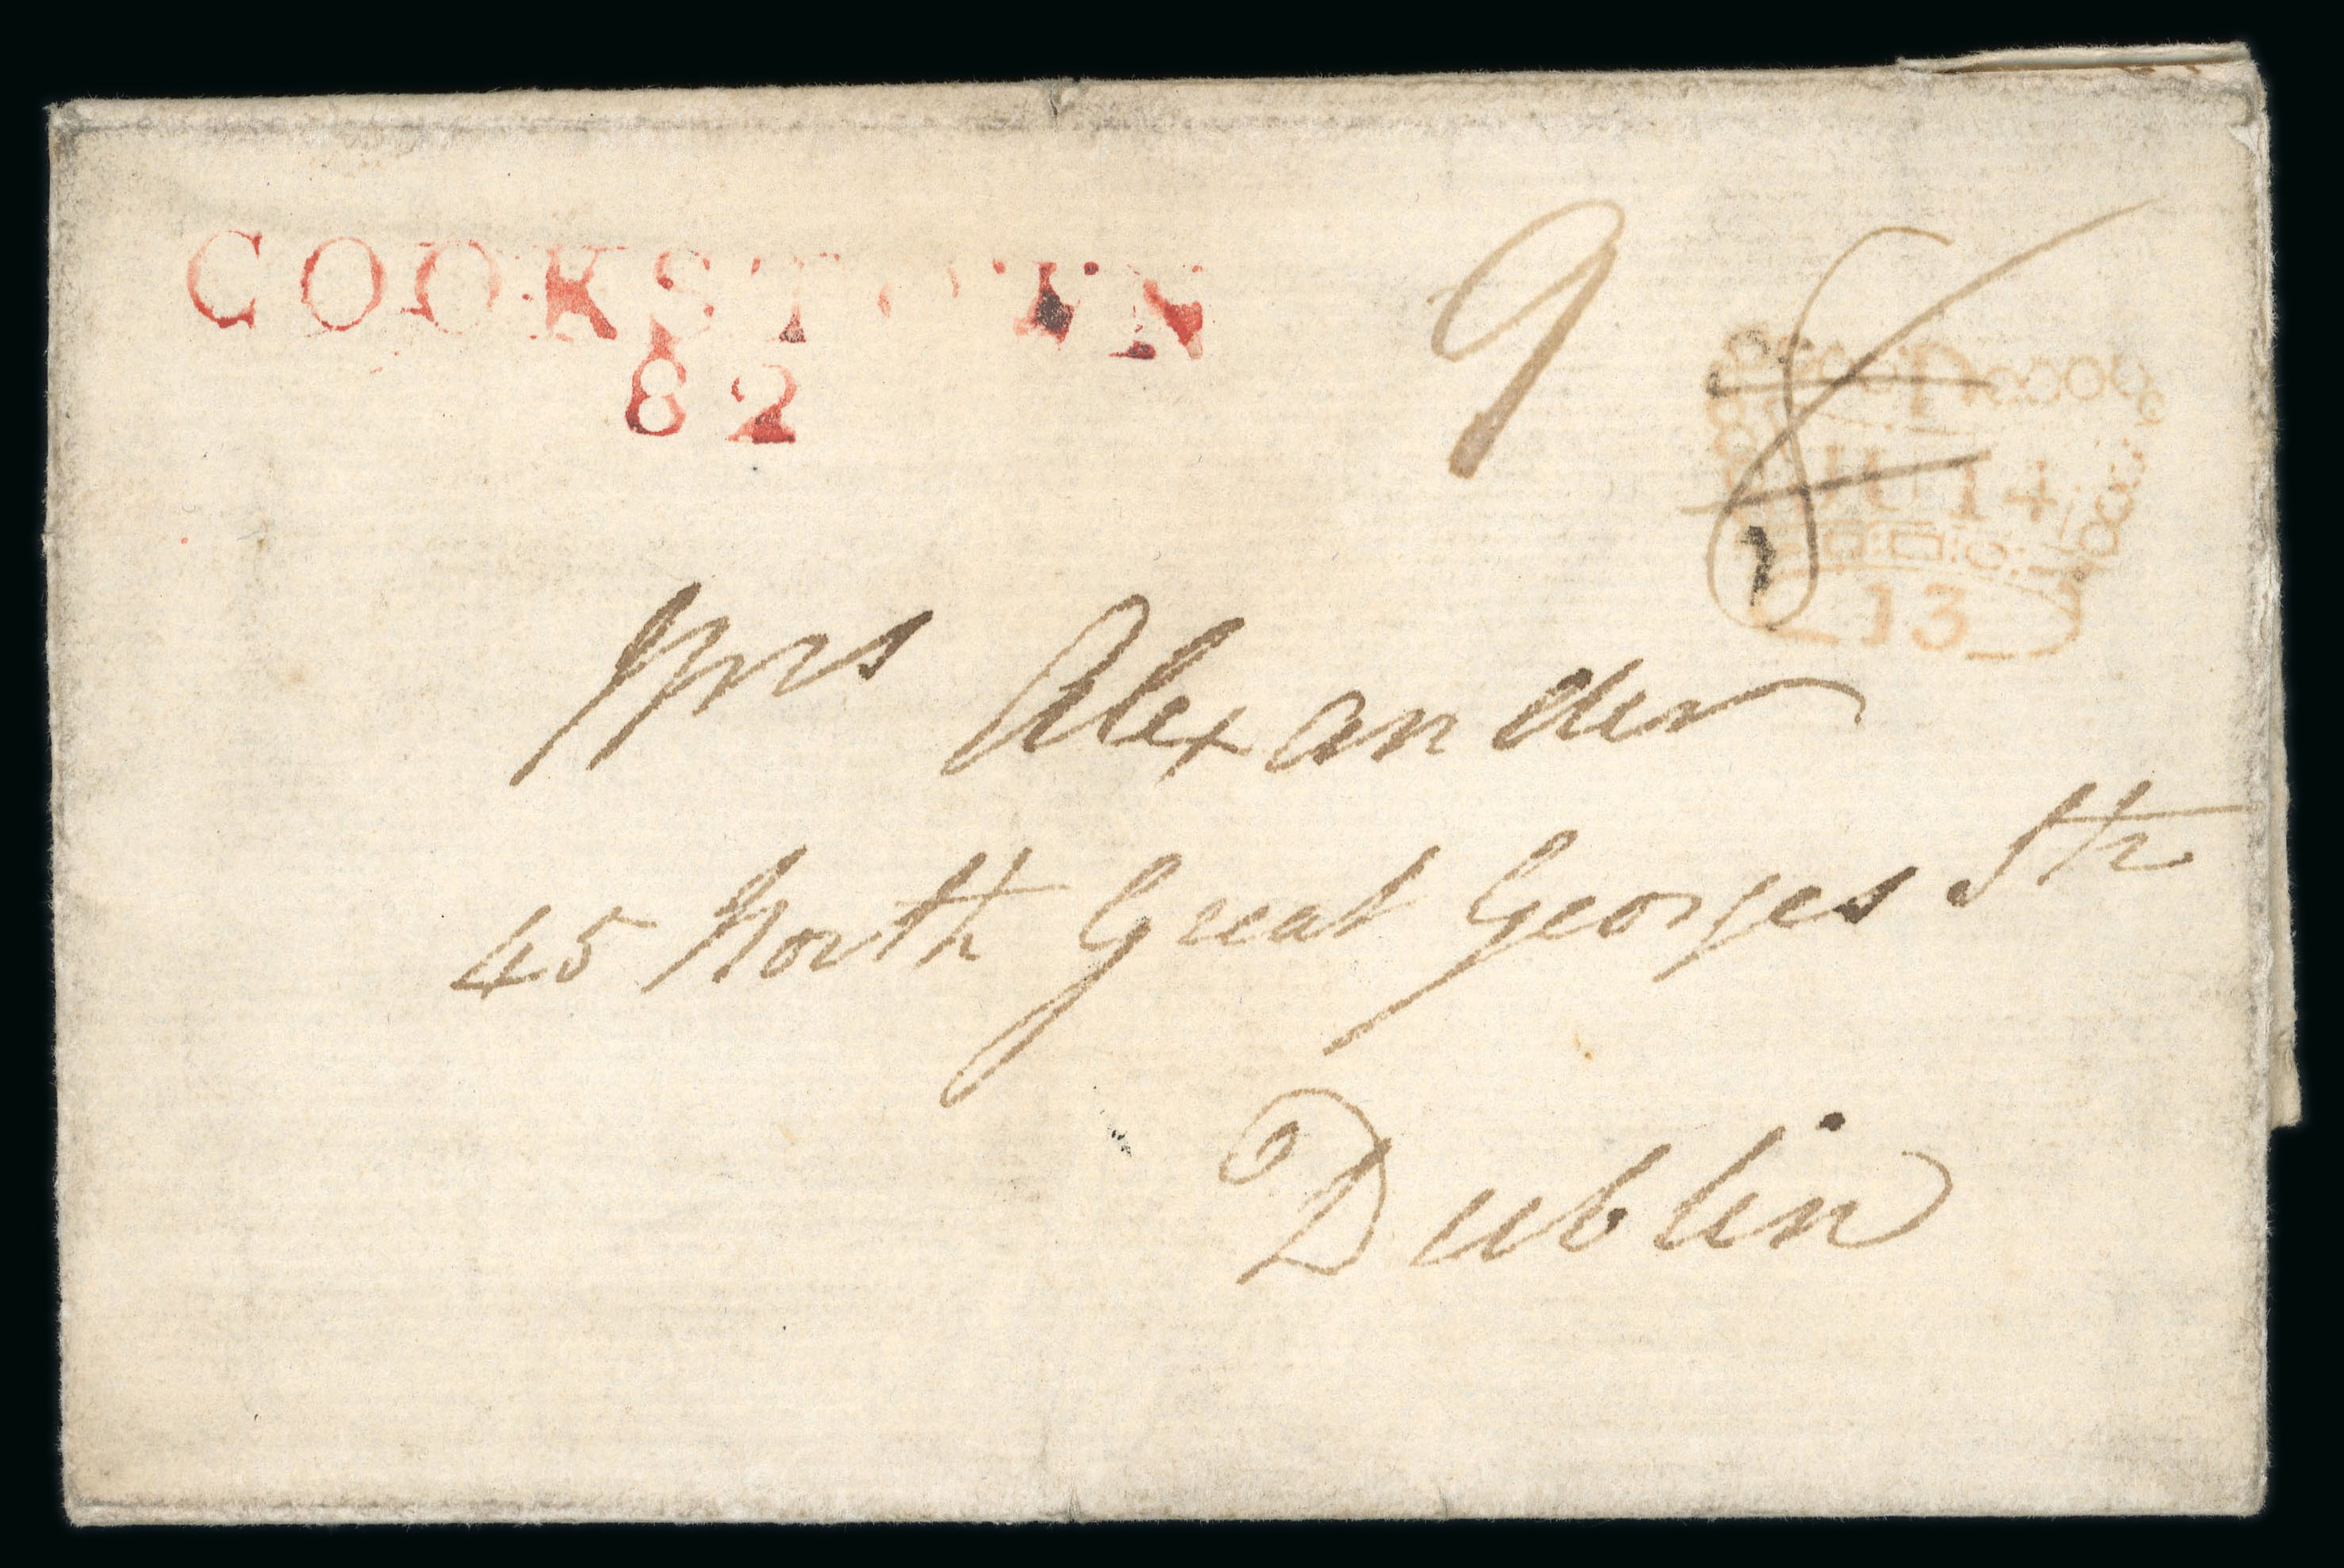 COOKSTOWN
82
9
JU 14
13
Mrs Alexander
45 North Great Georges Str
Dublin